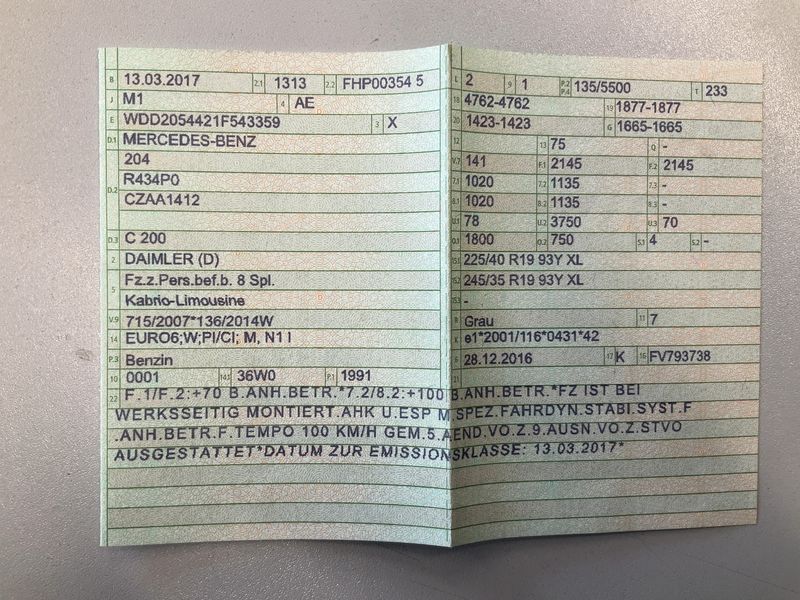 B 13.03.2017 2.1 1313 2.2 FHP00354 5
J M1 4 AE
E WDD2054421F543359 3 X
D.1 MERCEDES-BENZ
204
D.2 R434P0
CZAA1412
D.3 C 200
2 DAIMLER (D)
5 Fz.z.Pers.bef.b. 8 Spl.
Kabrio-Limousine
V.9 715/2007*136/2014W
14 EURO6;W;PI/CI; M, N1 I
P.3 Benzin
10 0001 14.1 36W0 P.1 1991
L 2 9 1 P.2 P.4 135/5500 T 233
18 4762-4762 19 1877-1877
20 1423-1423 G 1665-1665
12 13 75 Q -
V.7 141 F.1 2145 F.2 2145
7.1 1020 7.2 1135 7.3 -
8.1 1020 8.2 1135 8.3 -
U.1 78 U.2 3750 U.3 70
O.1 1800 O.2 750 S.1 4 S.2 -
15.1 225/40 R19 93Y XL
15.2 245/35 R19 93Y XL
15.3 -
R Grau 11 7
K e1*2001/116*0431*42
6 28.12.2016 17 K 16 FV793738
21
22 F.1/F.2:+70 B.ANH.BETR.*7.2/8.2:+100 B.ANH.BETR.*FZ IST BEI
WERKSSEITIG MONTIERT.AHK U.ESP M.SPEZ.FAHRDYN.STABI.SYST.F
.ANH.BETR.F.TEMPO 100 KM/H GEM.5.AEND.VO.Z.9.AUSN.VO.Z.STVO
AUSGESTATTET*DATUM ZUR EMISSIONSKLASSE: 13.03.2017*